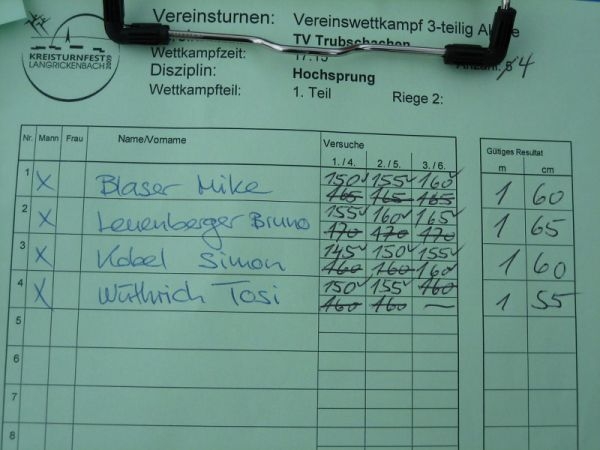 Vereinsturnen: Vereinswettkampf 3-teilig
TV Trubschachen
KREISTURNFEST
LANGRICKENBACH
Wettkampfzeit: 17:15
Disziplin: Hochsprung
Wettkampfteil: 1. Teil Riege 2:
Nr. Mann Frau Name/Vorname Versuche Gültiges Resultat
1. / 4. 2. / 5. 3. / 6. m cm
1 X Blaser Mike 150 155 160 1 60
165 165 165
2 X Leuenberger Bruno 155 160 165 1 65
170 170 170
3 X Kobel Simon 145 150 155 1 60
160 160 160
4 X Wüthrich Tosi 150 155 160 1 55
160 160 —
5
6
7
8